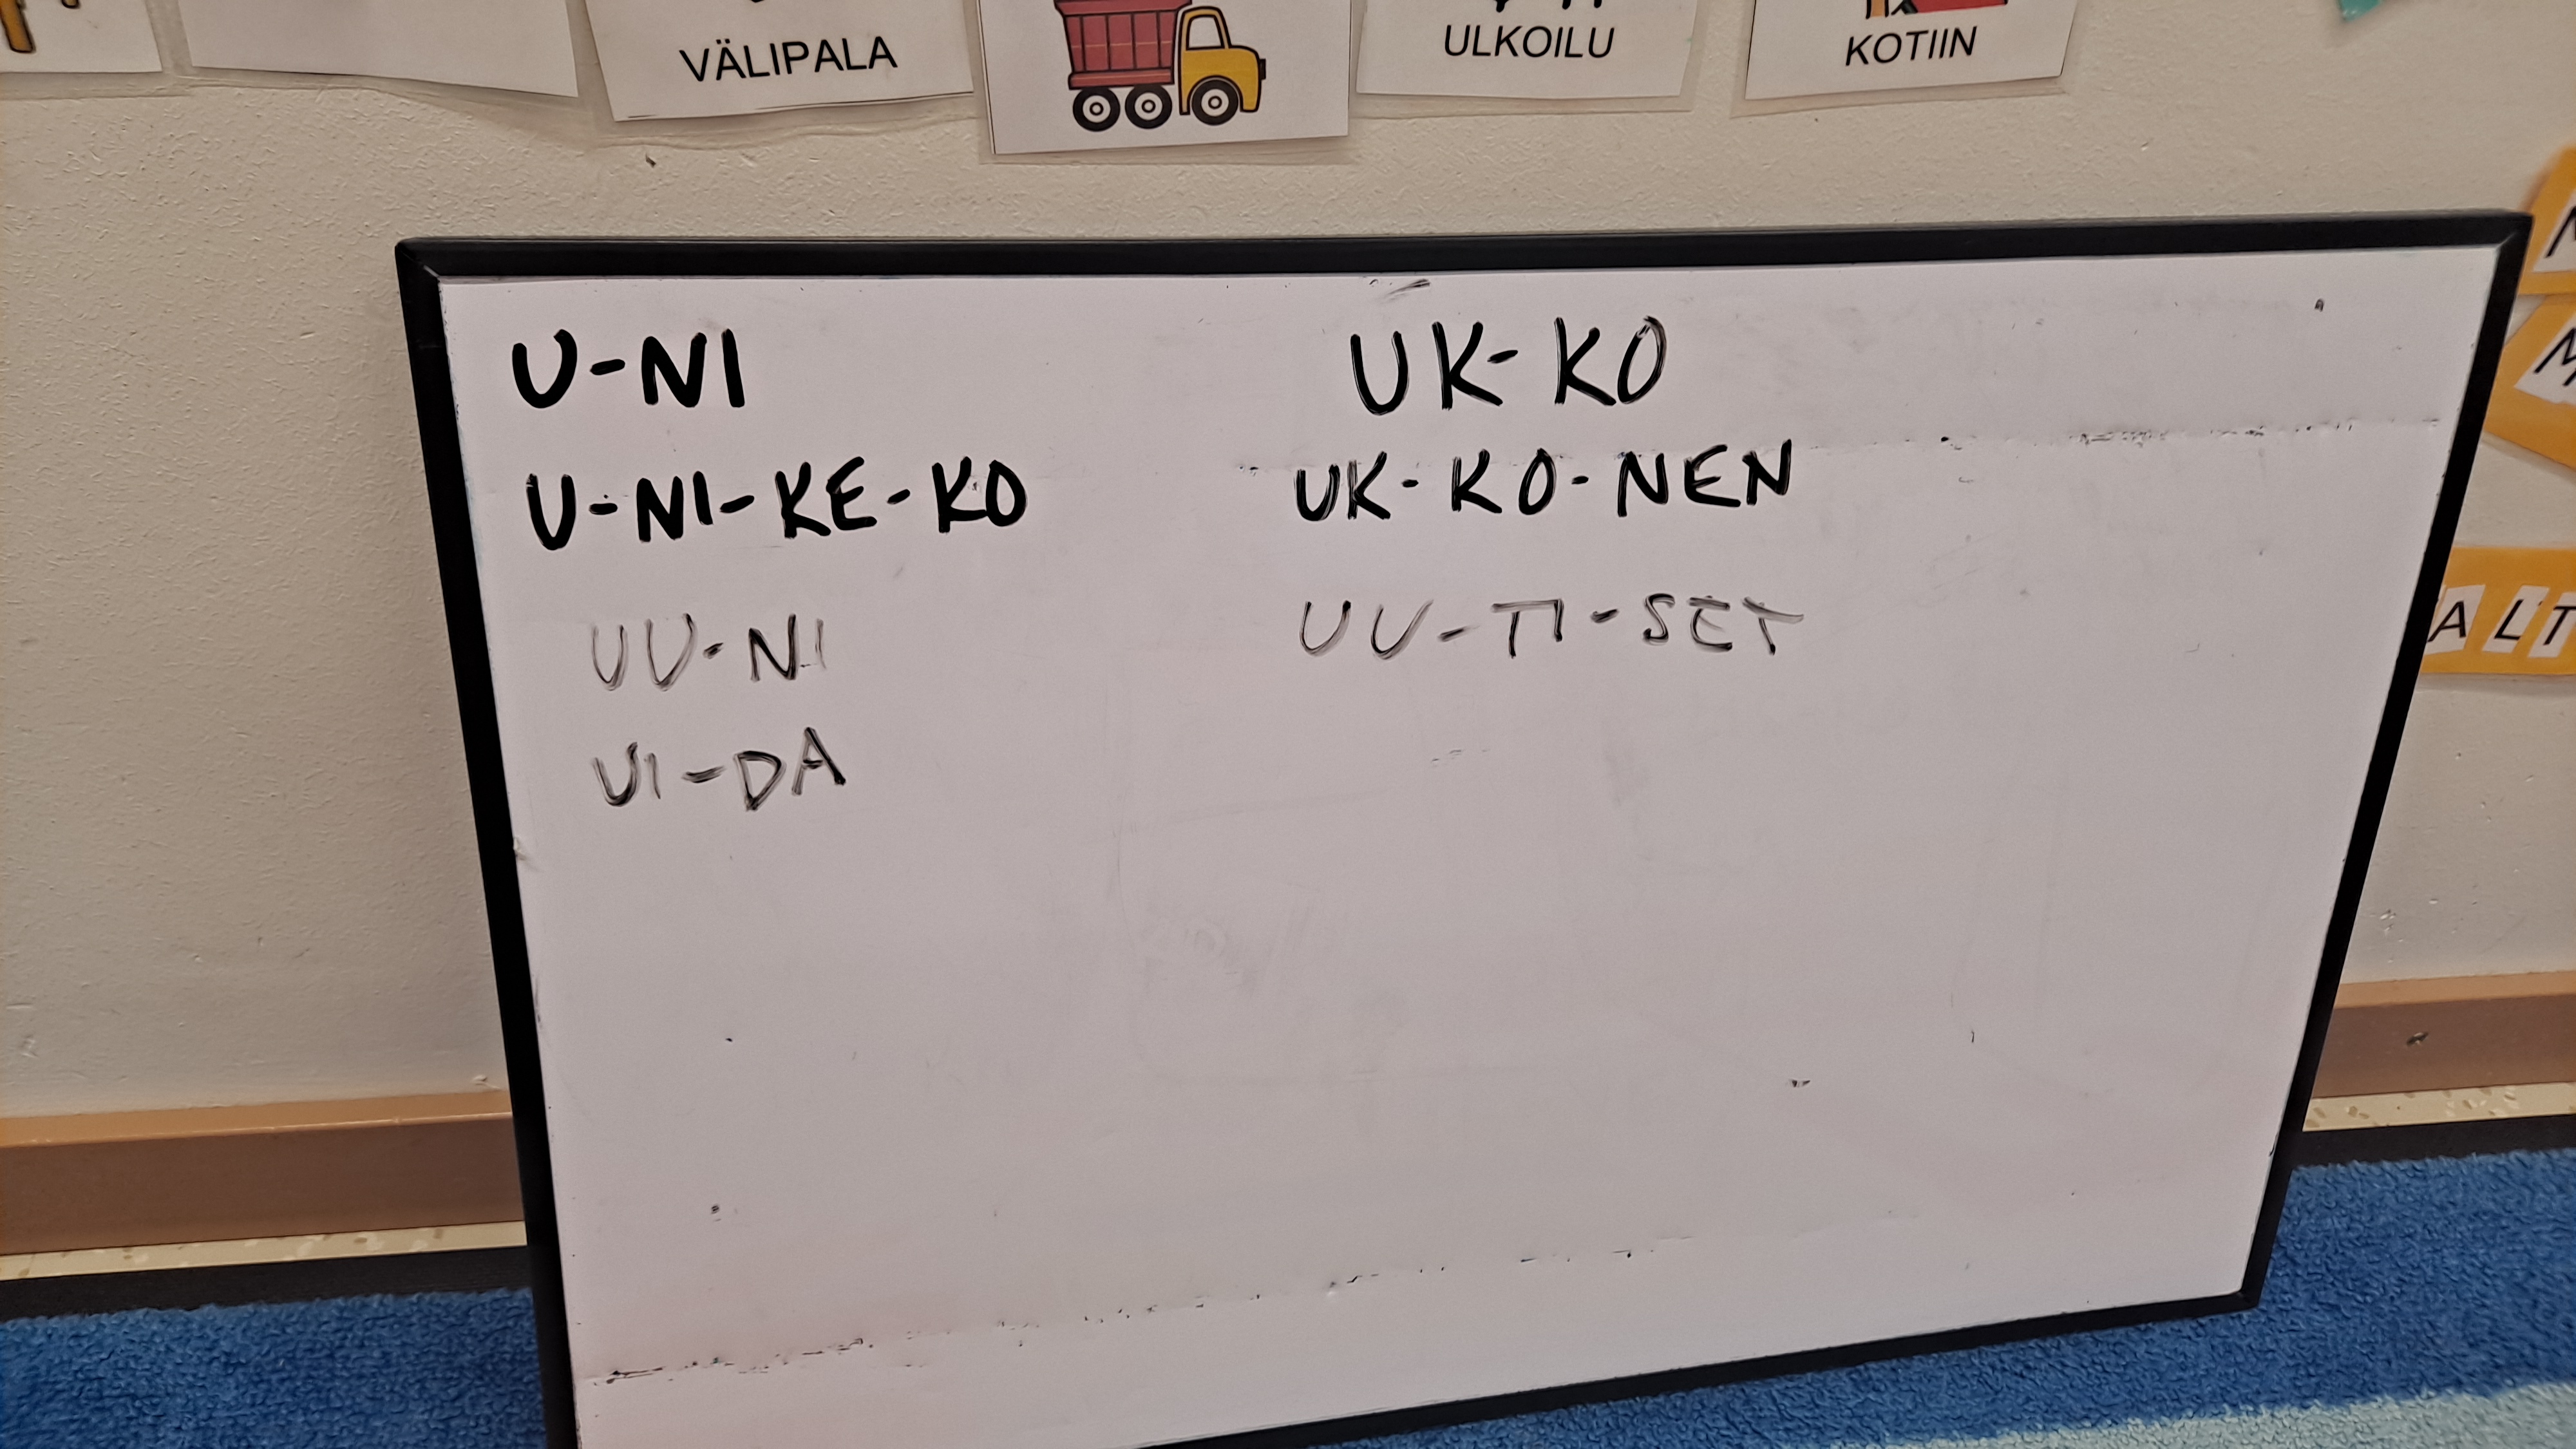 VÄLIPALA
ULKOILU
KOTIIN
U-NI
U-NI-KE-KO
UU-NI
UI-DA
UK-KO
UK-KO-NEN
UU-TI-SET
ALT